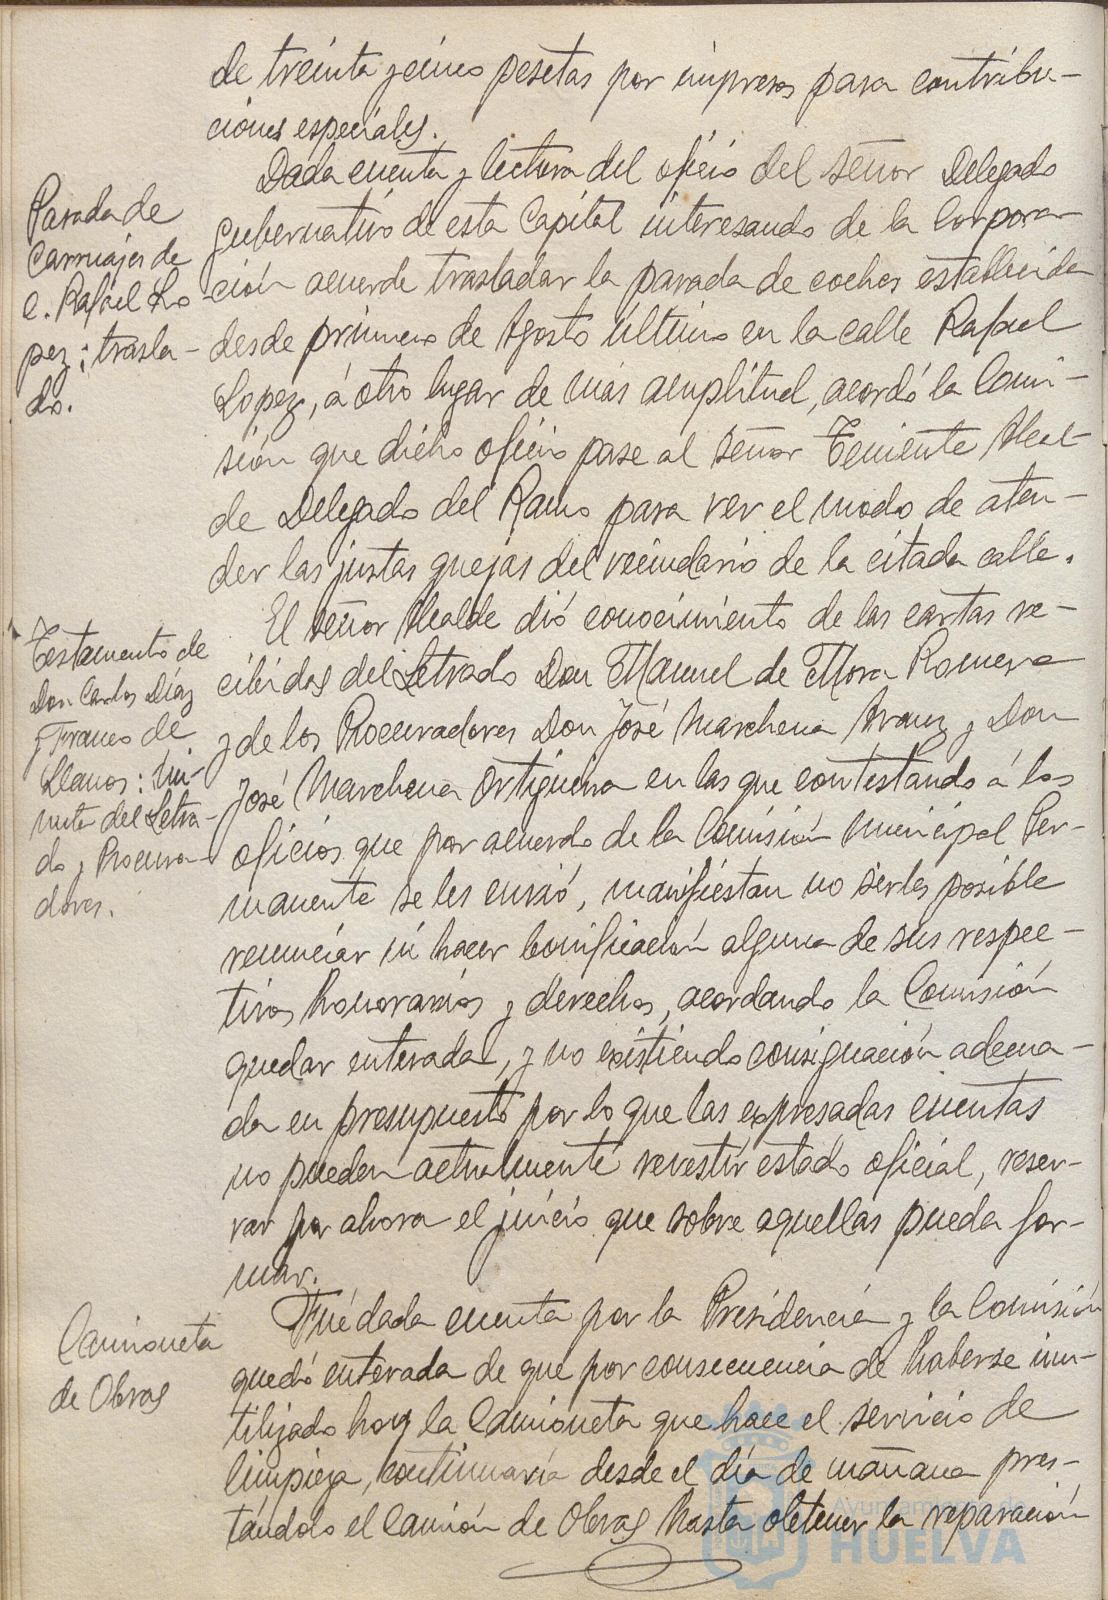 de treinta y cinco pesetas por impresos para contribu-
ciones especiales.
Parada de
Carruajes de
c. Rafael Lo
pez: trasla-
do.
Dada cuenta y lectura del oficio del señor Delegado
gubernativo de esta Capital interesando de la Corpora-
ción acuerde trasladar la parada de coches establecida
desde primero de Agosto último en la calle Rafael
Lopez, á otro lugar de más amplitud, acordó la Comi-
sión que dicho oficio pase al señor Teniente Alcal-
de Delegado del Ramo para ver el modo de aten-
der las justas quejas del vecindario de la citada calle.
Testamento de
Don Carlos Díaz
y Franco de
Llanos: Mi-
nuta del Letra-
do y Procura-
dores.
El señor Alcalde dió conocimiento de las cartas re-
cibidas del Letrado Don Manuel de Mora Romero
y de los Procuradores Don José Marchena Aranz y Don
José Marchena Ortigueira en las que contestando á los
oficios que por acuerdo de la Comisión Municipal Per-
manente se les envió, manifiestan no serles posible
renunciar ni hacer bonificación alguna de sus respec-
tivos honorarios y derechos, acordando la Comisión
quedar enterada, y no existiendo consignación adecua-
da en presupuesto por lo que las expresadas cuentas
no pueden actualmente revestir estado oficial, reser-
var por ahora el juicio que sobre aquellas pueda for-
mar.
Camioneta
de Obras
Fué dada cuenta por la Presidencia y la Comisión
quedó enterada de que por consecuencia de haberse inu-
tilizado hoy la Camioneta que hace el servicio de
limpieza, continuaría desde el día de mañana pres-
tándolo el Camión de Obras hasta obtener la reparación
Ayuntamiento de
HUELVA